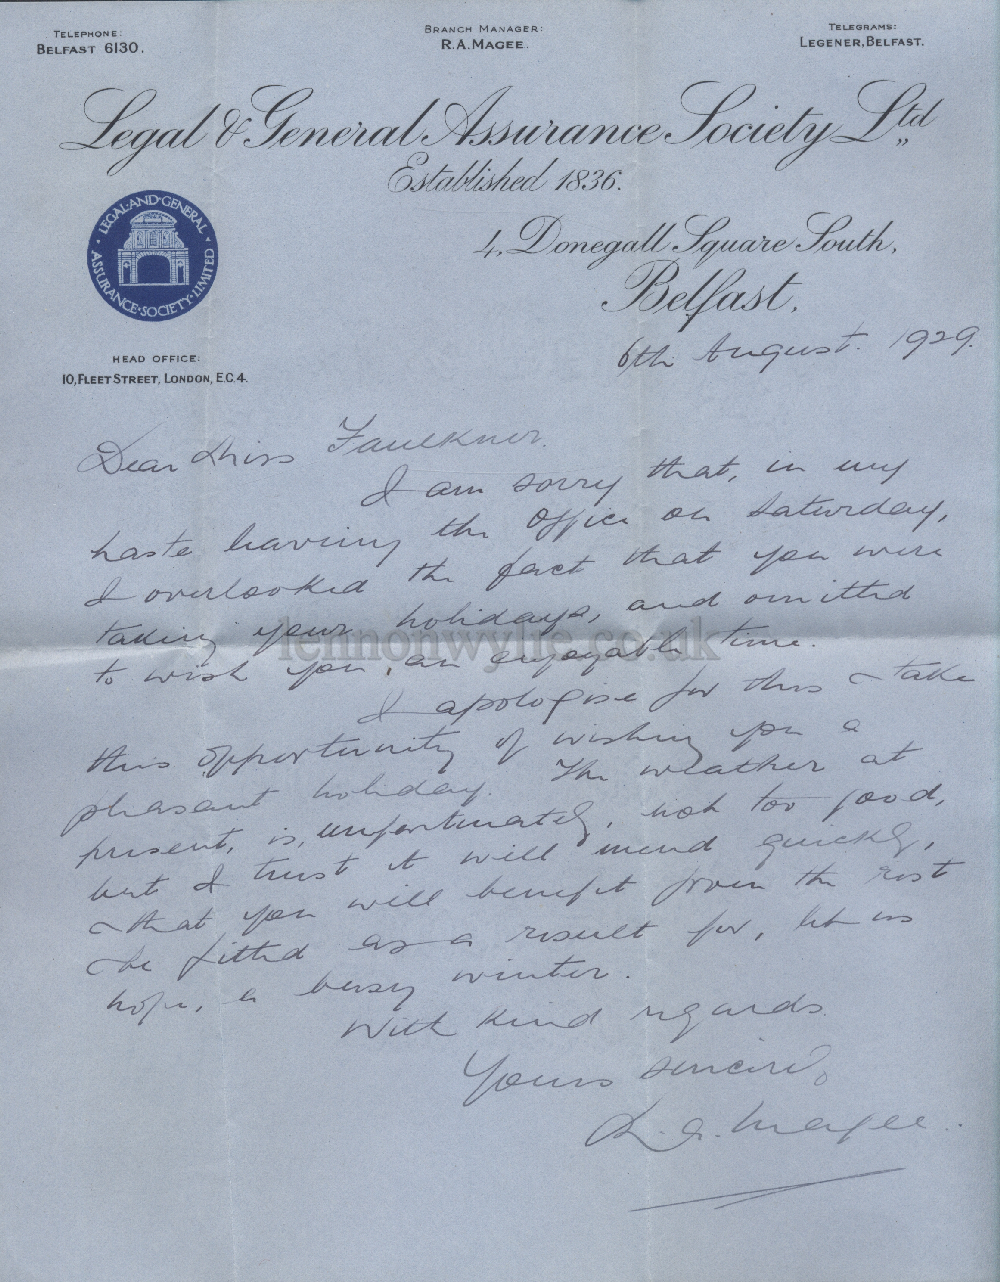 TELEPHONE:
BELFAST 6130.
BRANCH MANAGER:
R.A. MAGEE.
TELEGRAMS:
LEGENER, BELFAST.
Legal & General Assurance Society Ltd
Established 1836.
4, Donegall Square South,
Belfast.
LEGAL·AND·GENERAL·
ASSURANCE·SOCIETY·LIMITED
HEAD OFFICE:
10, FLEET STREET, LONDON, E.C.4.
6th August. 1929.
Dear Miss Faulkner.
I am sorry that, in my
haste leaving the office on Saturday,
I overlooked the fact that you were
taking your holidays, and omitted
to wish you, an enjoyable time.
I apologise for this & take
this opportunity of wishing you a
pleasant holiday. The weather at
present, is, unfortunately, not too good,
but I trust it will mend quickly,
& that you will benefit from the rest
& be fitted as a result for, let us
hope, a busy winter.
With kind regards.
Yours sincerely
R.A. Magee.
lennonwylie.co.uk